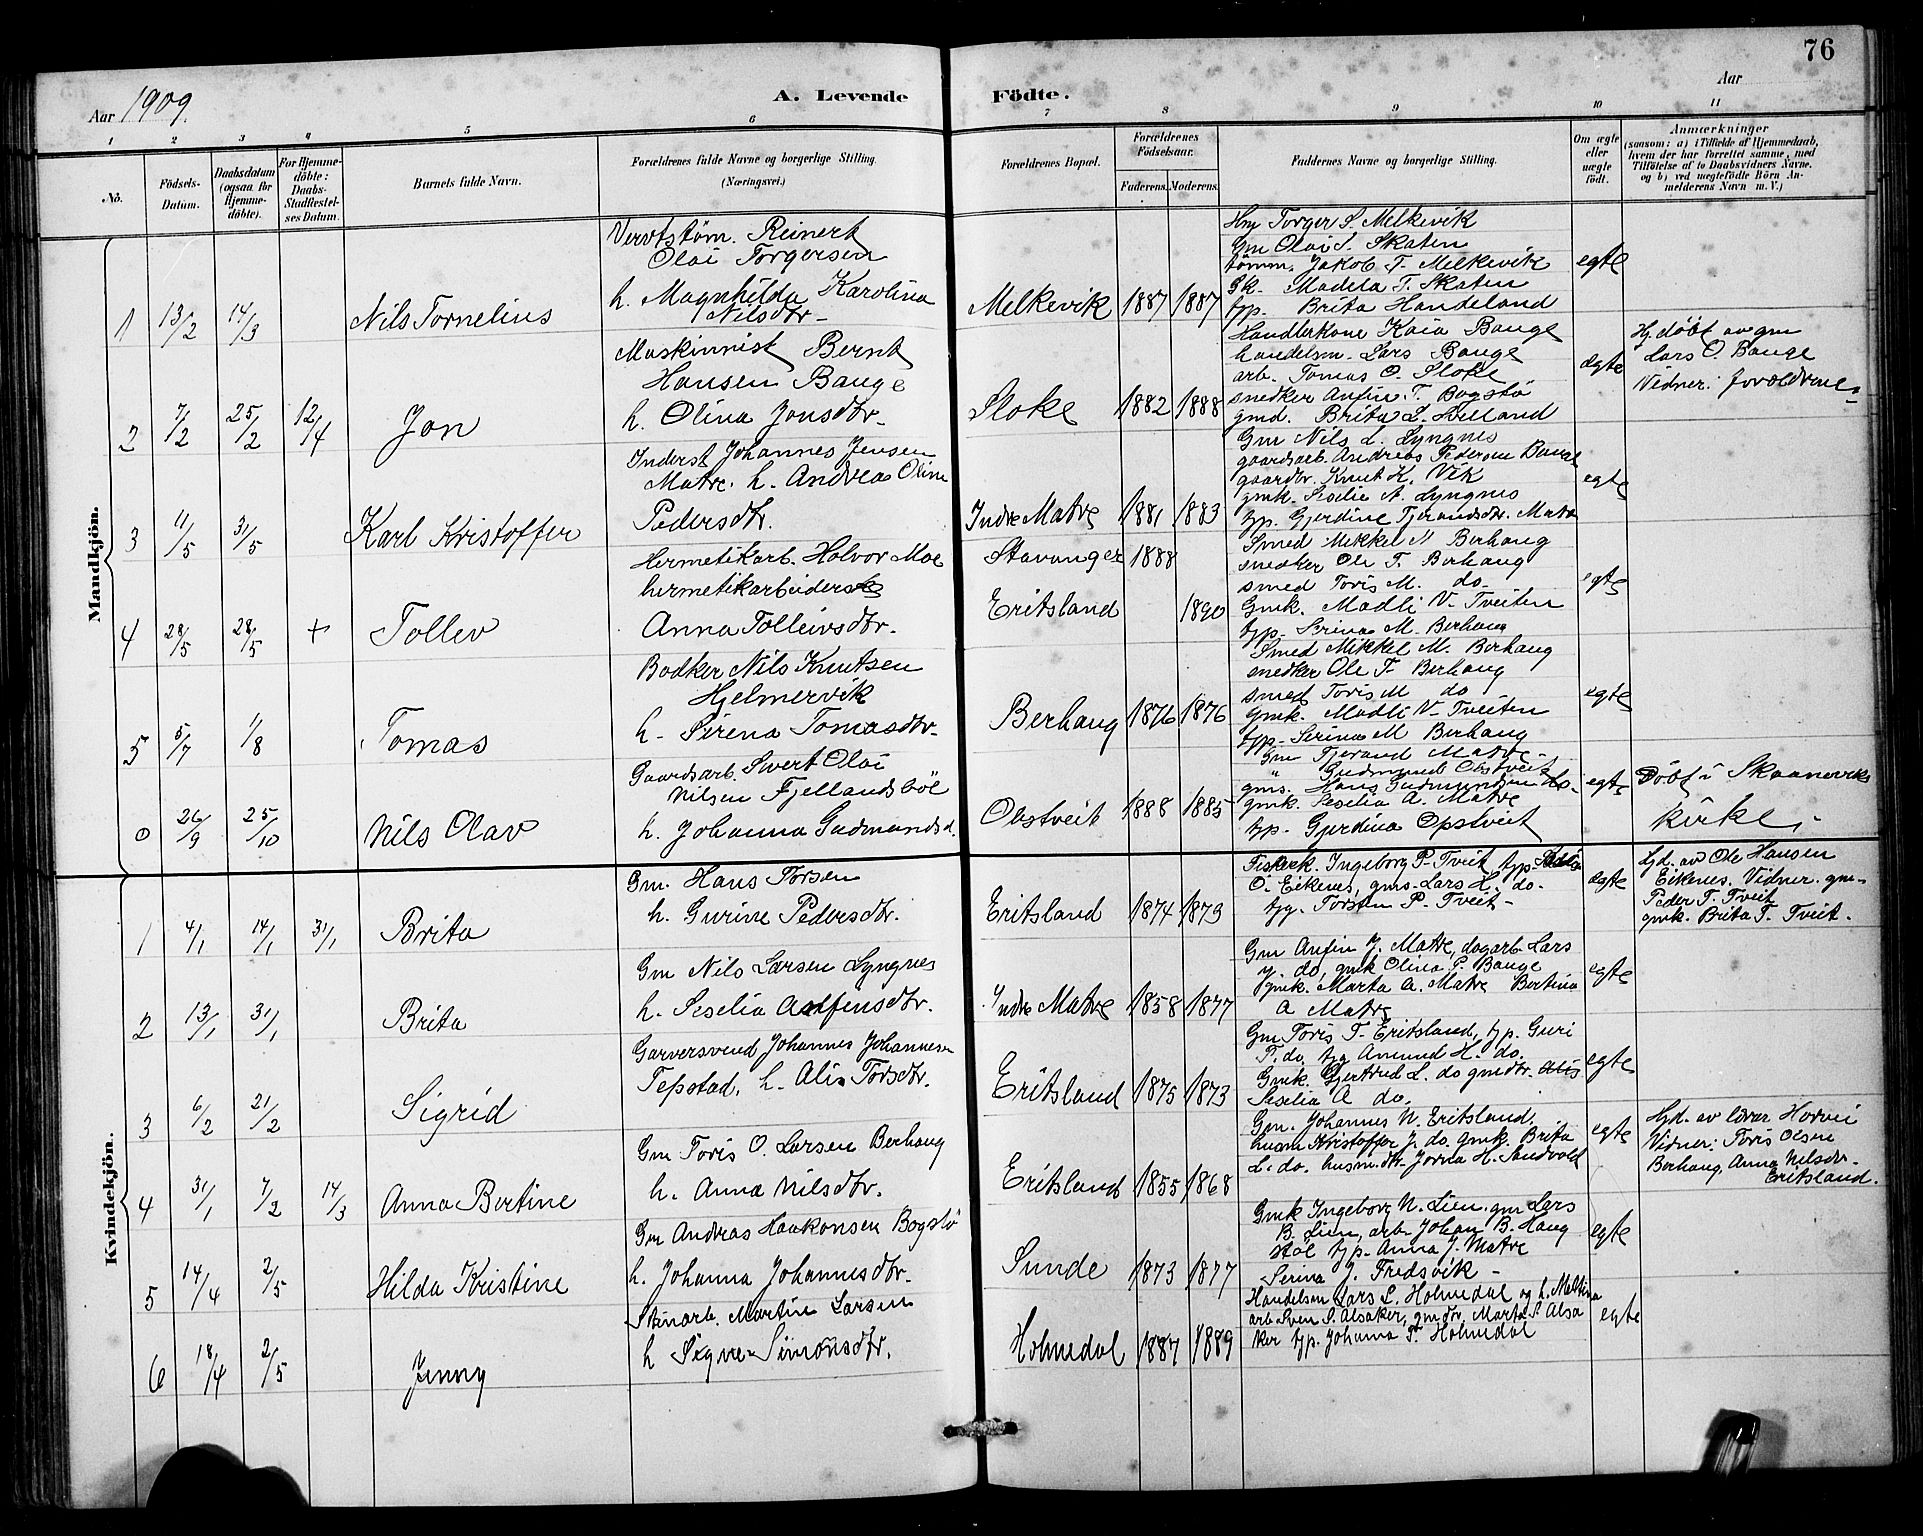 76
Aar 1909.
A. Levende Födte.
Aar
1 2 3 4 5 6 7 8 9 10 11
No.
Födsels-Datum.
Daabsdatum (ogsaa for Hjemme-döbte).
For Hjemme-döbte: Daabs-Stadfestel-ses Datum.
Barnets fulde Navn.
Forældrenes fulde Navne og borgerlige Stilling.
(Næringsvei.)
Forældrenes Bopæl.
Forældrenes Födselsaar.
Faderens. Moderens.
Faddernes Navne og borgerlige Stilling.
Om ægte eller uægte födt.
Anmærkninger
(saasom: a) i Tilfælde af Hjemmedaab,
hvem der har forrettet samme, med
Tilföielse af to Daabsvidners Navne.
og b) ved uegtefödte Börn An-
melderens Navn m. V.)
Mandkjön.
1 13/2 14/3 Nils Tornelius
Verftstöm. Reinert
Olai Torgersen
h. Magnhilda Karolina
Nilsdtr-
Melkevik 1887 1887
Gm Torger S. Melkevik
Gm Olai S. Skaten
tömm. Jakob T. Melkevik
Gk. Madela T. Skaten
typ. Brita Handeland
egte
2 7/2 25/2 12/4 Jon
Maskinnist Bernt
Hansen Bauge
h. Olina Jonsdtr-
Sloke 1882 1888
Handlerkone Kaia Bauge
handelsm. Lars Bauge
arb. Tomas O. Sloke
snedker Anfin T. Bogstö
gmd. Brita L. Helland
egte
Hj. döbt av gm
Lars O. Bauge
Vidner: forældrene-
3 11/5 31/5 Karl Kristoffer
Inderst Johannes Jensen
Matre. h. Andrea Oline
Pedersdtr.
Indre Matre 1881 1883
Gm Nils L. Lyngnes
gaardsarb. Andreas Pedersen Bauge
gaardbr. Knut K. Vik
gmk. Seselie A. Lyngnes
typ. Gjerdine Tjerandsdtr. Matre
egte
4 28/5 28/5 + Tollev
Hermetikarb. Halvor Moe
hermetikarbeiderske
Anna Tolleivsdtr.
Stavanger 1888
Eritsland 1890
Smed Mikkel M Berhaug
snedker Ole T. Berhaug
smed Toris M. do-
Gmk. Madli V- Tveiten
typ- Serina M. Berhaug
egte
5 5/7 1/8 Tomas
Bødker Nils Knutsen
Hjelmervik
h- Sirena Tomasdtr-
Berhaug 1876 1876
Smed Mikkel M. Berhaug
snedker Ole T- Berhaug
smed Toris M do
Gmk. Madli V- Tveiten
typ- Serina M Berhaug
egte
0 26/9 25/10 Nils Olav
Gaardsarb. Sivert Olai
Nilsen Fjellandsböl
h. Johanna Gudmundsd.
Obstveit 1888 1885
Gm Tjerand Matre-
" Gudmund Obstveit
gms. Hans Gudmundsen do-
gmk. Seselia A. Matre
typ. Gjerdina Opstveit
egte
Döbt i Skaanevik
kirke,
Kvindekjön.
1 4/1 14/1 31/1 Brita
Gm. Hans Torsen
h. Gurine Pedersdtr.
Eritsland 1874 1873
Fiskerk. Ingeborg P- Tveit typ
O. Eikenes, gms- Lars H. do-
tyg. Torsten P- Tveit-
egte
Hjd. av Ole Hansen
Eikenes. Vidner. gm-
Peder T. Tveit
gmk. Brita T. Tveit.
2 13/1 31/1 Brita
Gm Nils Larsen Lyngnes
h. Seselia Anfinsdtr.
Indre Matre 1858 1877
Gm Anfin J. Matre, dagarb. Lars
J. do, gmk Olina P. Bauge
gmk. Marta A. Matre Bertina
A Matre
egte
3 6/2 21/2 Sigrid
Garversvend Johannes Johannesen
Tepstad, h. Alis Torsdtr.
Eritsland 1875 1873
Gm Toris T- Eritsland, typ. Guri
T. do, tyg Amund H. do.
Gmk. Gjertrud L. do gmdtr.
Seselia A do.
egte
4 31/1 7/2 14/3 Anna Bertine
Gm Toris O. Larsen Berhaug
h. Anna Nilsdtr.
Eritsland 1855 1868
Gm. Johannes N. Eritsland,
husm Kristoffer J. do. gmk. Brita
L. do. husm. dtr- Jorina H. Sandvold
egte
Hjd. av lærer Horvei
Vidner: Toris Olsen
Berhaug, Anna Nilsdtr-
Eritsland.
5 14/4 2/5 Hilda Kristine
Gm Andreas Haakonsen Bogstö
h. Johanna Johannesdtr-
Sunde 1873 1877
Gmk Ingeborg N. Lien, gm Lars
B. Lien, arb- Johan B. Haug
stöl typ- Anna J. Matre
Serina J. Fredsvik-
egte
6 18/4 2/5 Jenny
Stenarb. Martin Larsen
h Signe Simonsdtr.
Holmedal 1887 1889
Handelsm Lars L. Holmedal og h. Meltina
arb Sven S. Alsaker, gmdtr. Marta S. Alsa
ker typ. Johanna T. Holmedal
egte